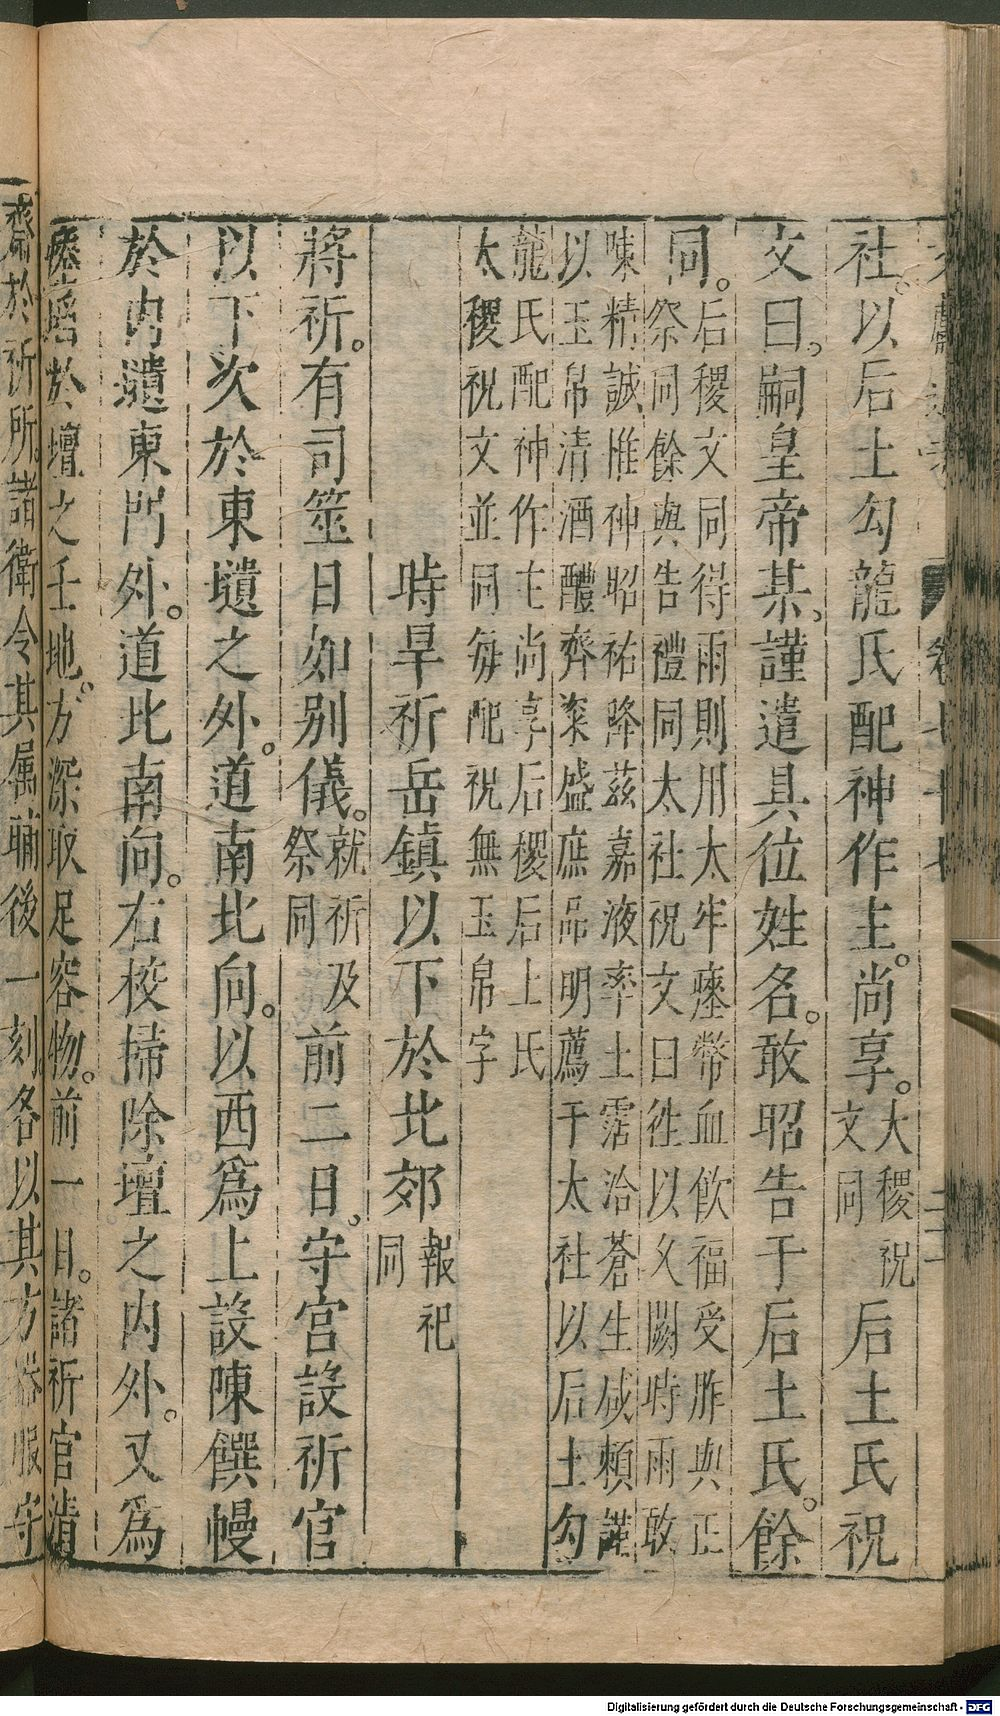 社。以后土勾龍氏配神作主。尚享。大稷祝文同后土氏祝
文曰。嗣皇帝某、謹遣具位姓名。敢昭告于后土氏。餘
同。后稷文同得雨則用太牢瘞幣血飲福受胙與正
祭同餘與告禮同太社祝文曰徃以久闕時雨敢
陳精誠惟神昭祐降茲嘉液率土霑洽蒼生咸賴謹
以玉帛清酒醴齊粢盛庶品明薦于太社以后土勾
龍氏配神作主尚享后稷后土氏
太稷祝文並同每配祝無玉帛字
時旱祈岳鎮以下於北郊報祀同
將祈。有司筮日如别儀。就祈及祭同前二日。守宮設祈官
以下次於東壝之外。道南北向。以西爲上設陳饌幔
於內壝東門外。道北南向。右校掃除壇之內外。又爲
瘞埳於壇之壬地。方深取足容物。前一日。諸祈官清
齋於祈所。諸衛令其属晡後一刻各以其方器服守
卷七十七
二
Digitalisierung gefördert durch die Deutsche Forschungsgemeinschaft - DFG